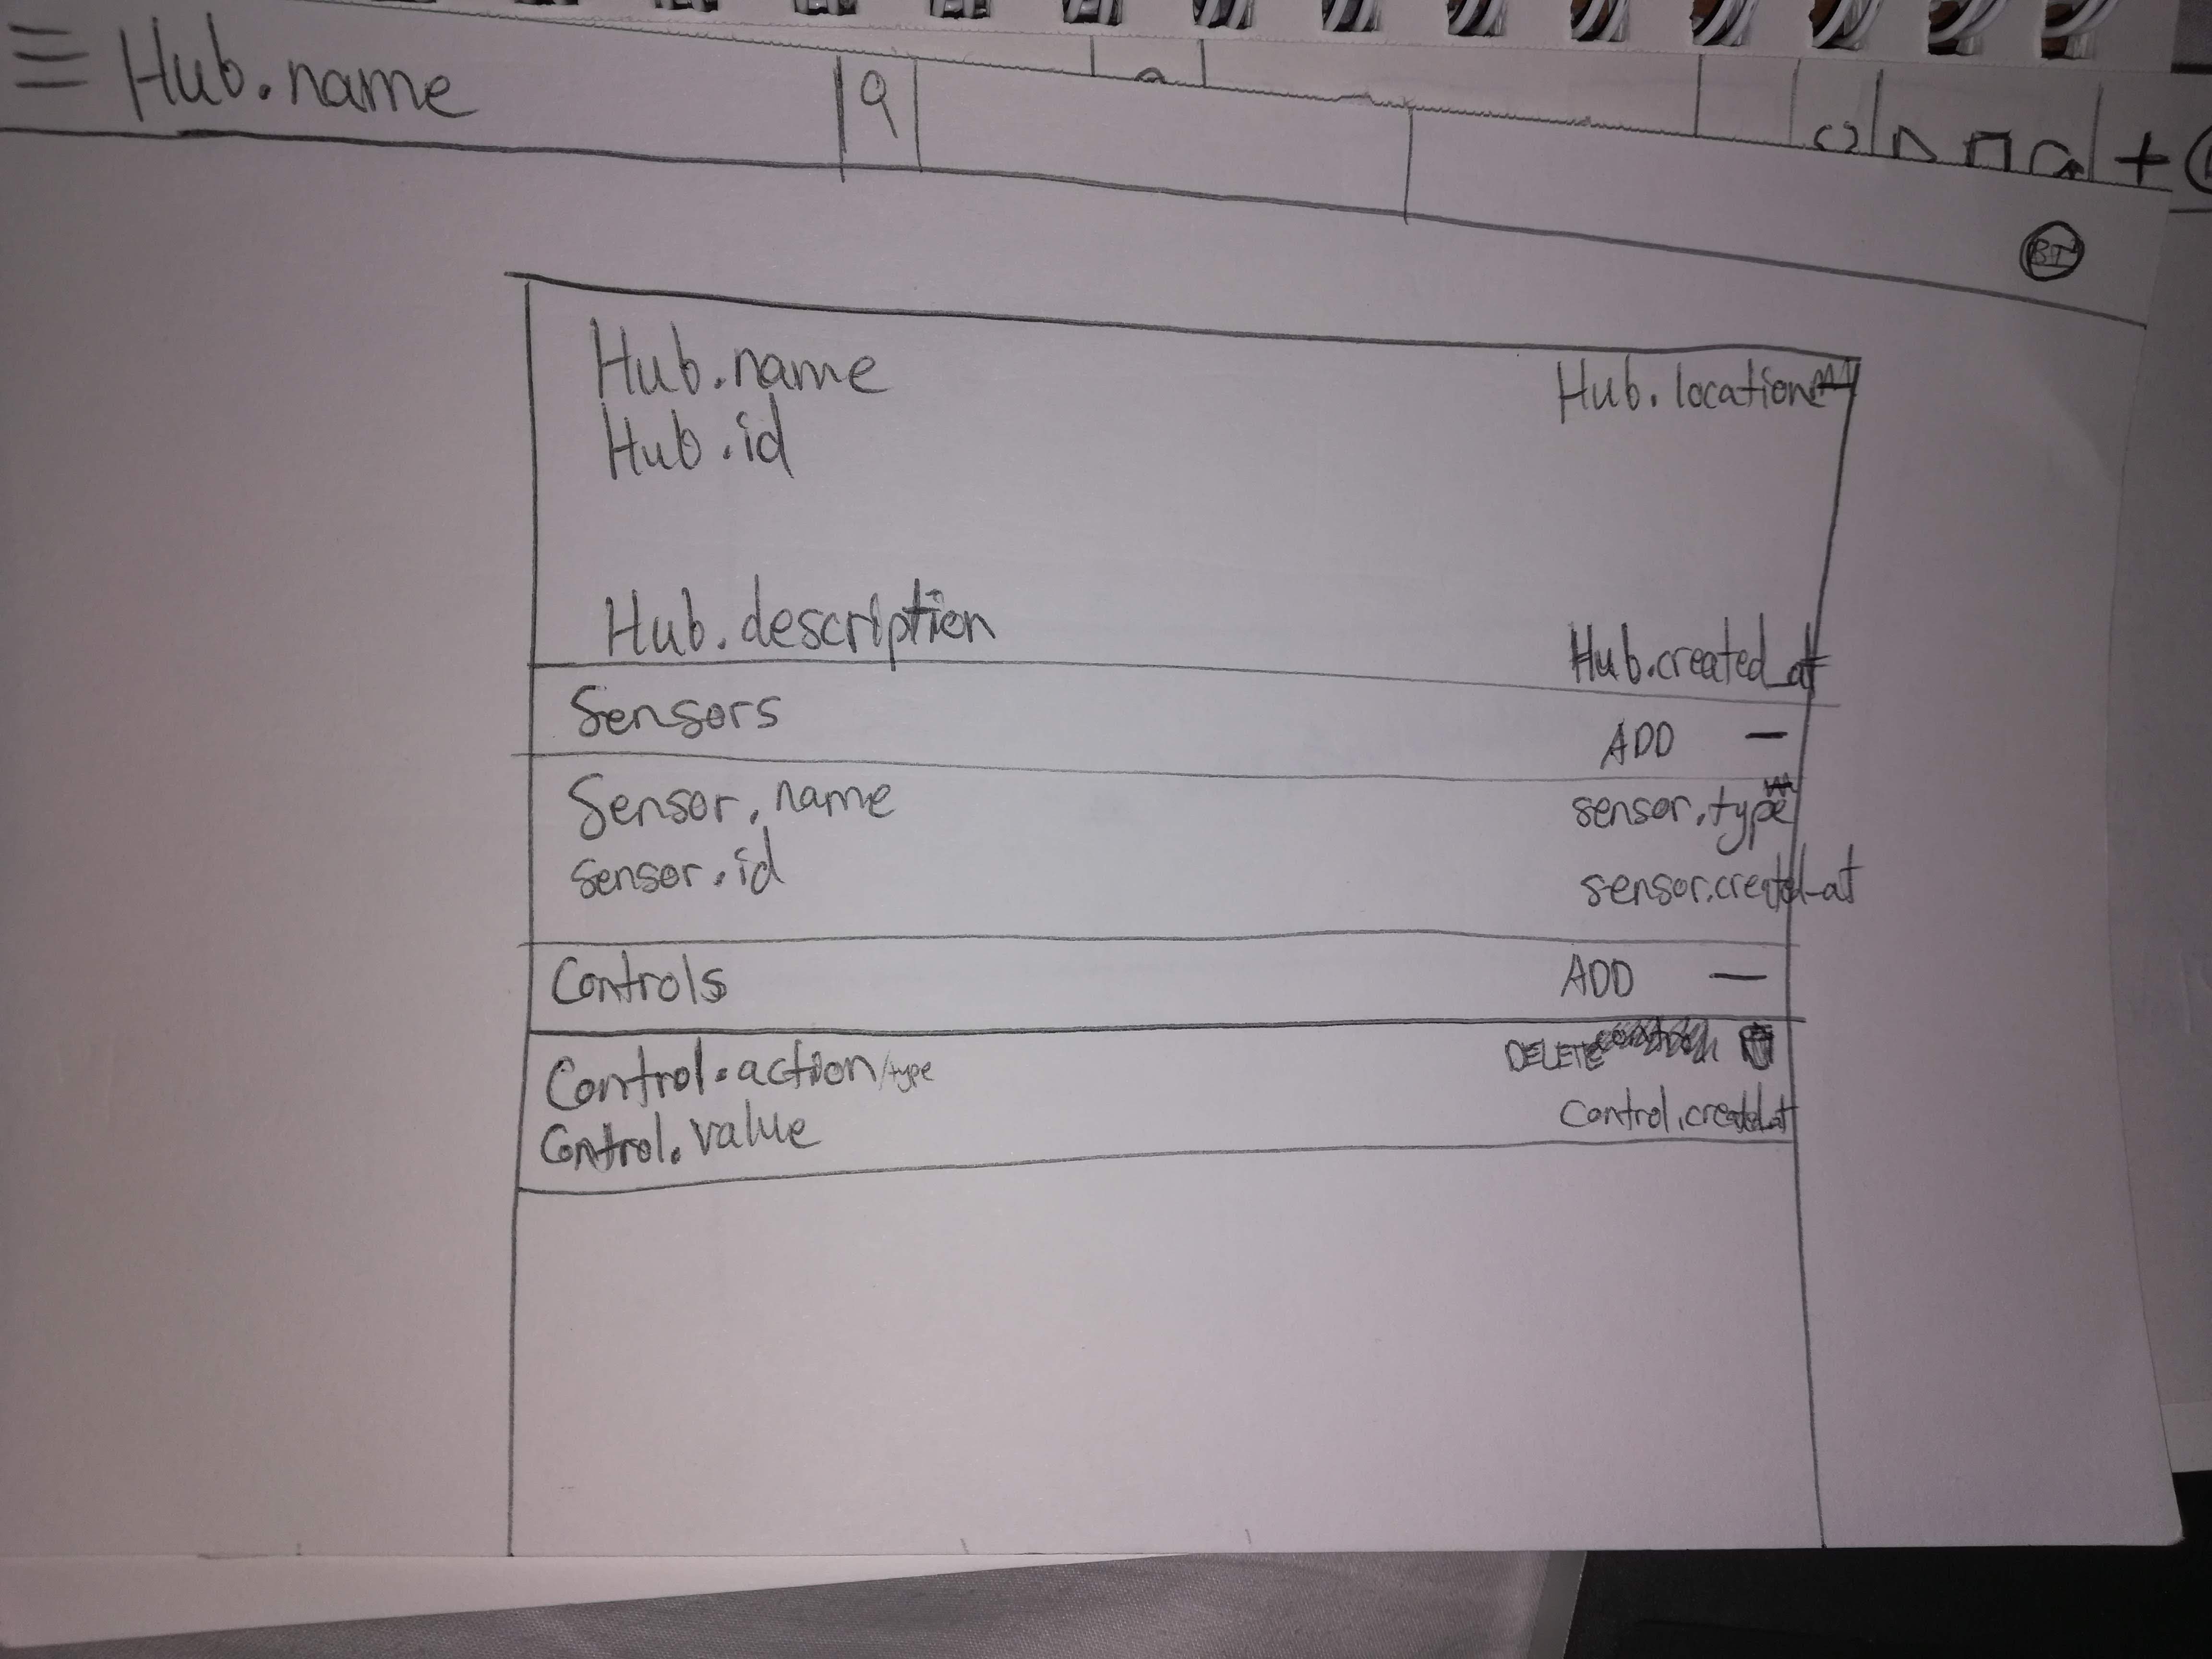 Hub.name
Hub.name Hub.location
Hub.id
Hub.description Hub.created_at
Sensors ADD —
Sensor.name sensor.type
sensor.id sensor.created_at
Controls ADD —
Control.action/type DELETE
Control.value Control.created_at